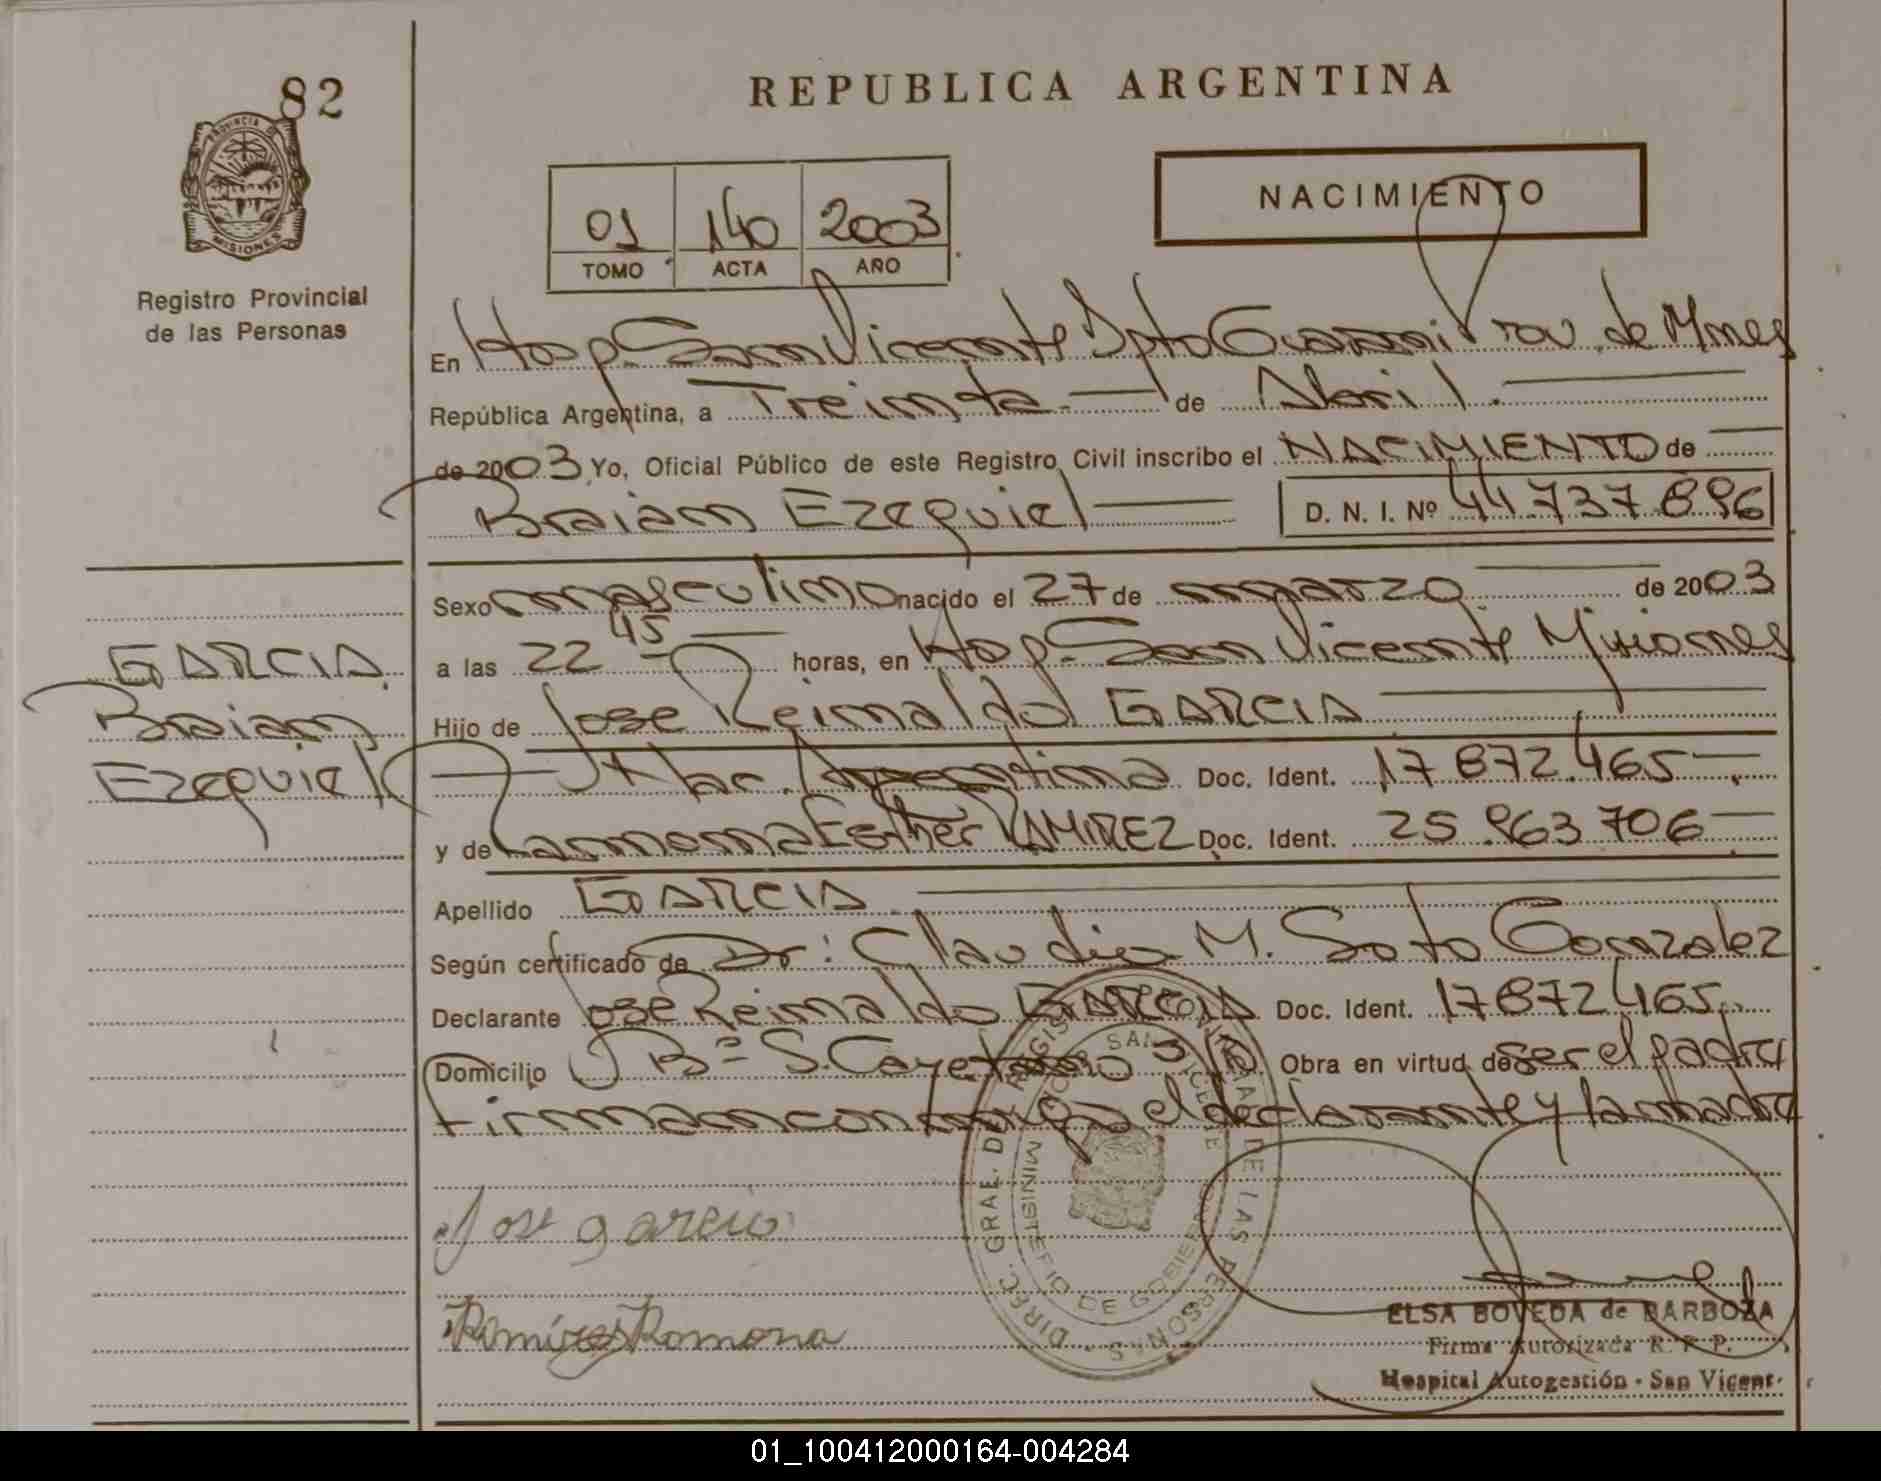 82
REPUBLICA ARGENTINA
PROVINCIA DE
MISIONES
Registro Provincial
de las Personas
01 140 2003
TOMO ACTA AÑO
NACIMIENTO
En Hosp. San Vicente Dpto Guarani Prov. de Mnes
República Argentina, a Treinta de Abril.
de 2003 Yo, Oficial Público de este Registro Civil inscribo el NACIMIENTO de
Braian Ezequiel D. N. I. Nº 44.737.896
Sexo masculino nacido el 27 de marzo de 2003
a las 22 45 horas, en Hosp. San Vicente Misiones
Hijo de Jose Reinaldo GARCIA
Nac. Argentina Doc. Ident. 17.872.465
y de Ramona Esther RAMIREZ Doc. Ident. 25.963.706
Apellido GARCIA
Según certificado de Dr: Claudio M. Soto Gonzalez
Declarante Jose Reinaldo GARCIA Doc. Ident. 17872465
Domicilio Bº S. Cayetano S/N. Obra en virtud de ser el padre
Firman conmigo el declarante y la madre
GARCIA
Braian
Ezequiel
Jose garcia
Ramirez Ramona
DIREC. GRAL. DE REGISTRO PROVINCIAL DE LAS PERSONAS
MINISTERIO DE GOBIERNO
SAN VICENTE
ELSA BOVEDA de BARBOZA
Firma Autorizada R. P. P.
Hospital Autogestión - San Vicente
01_100412000164-004284